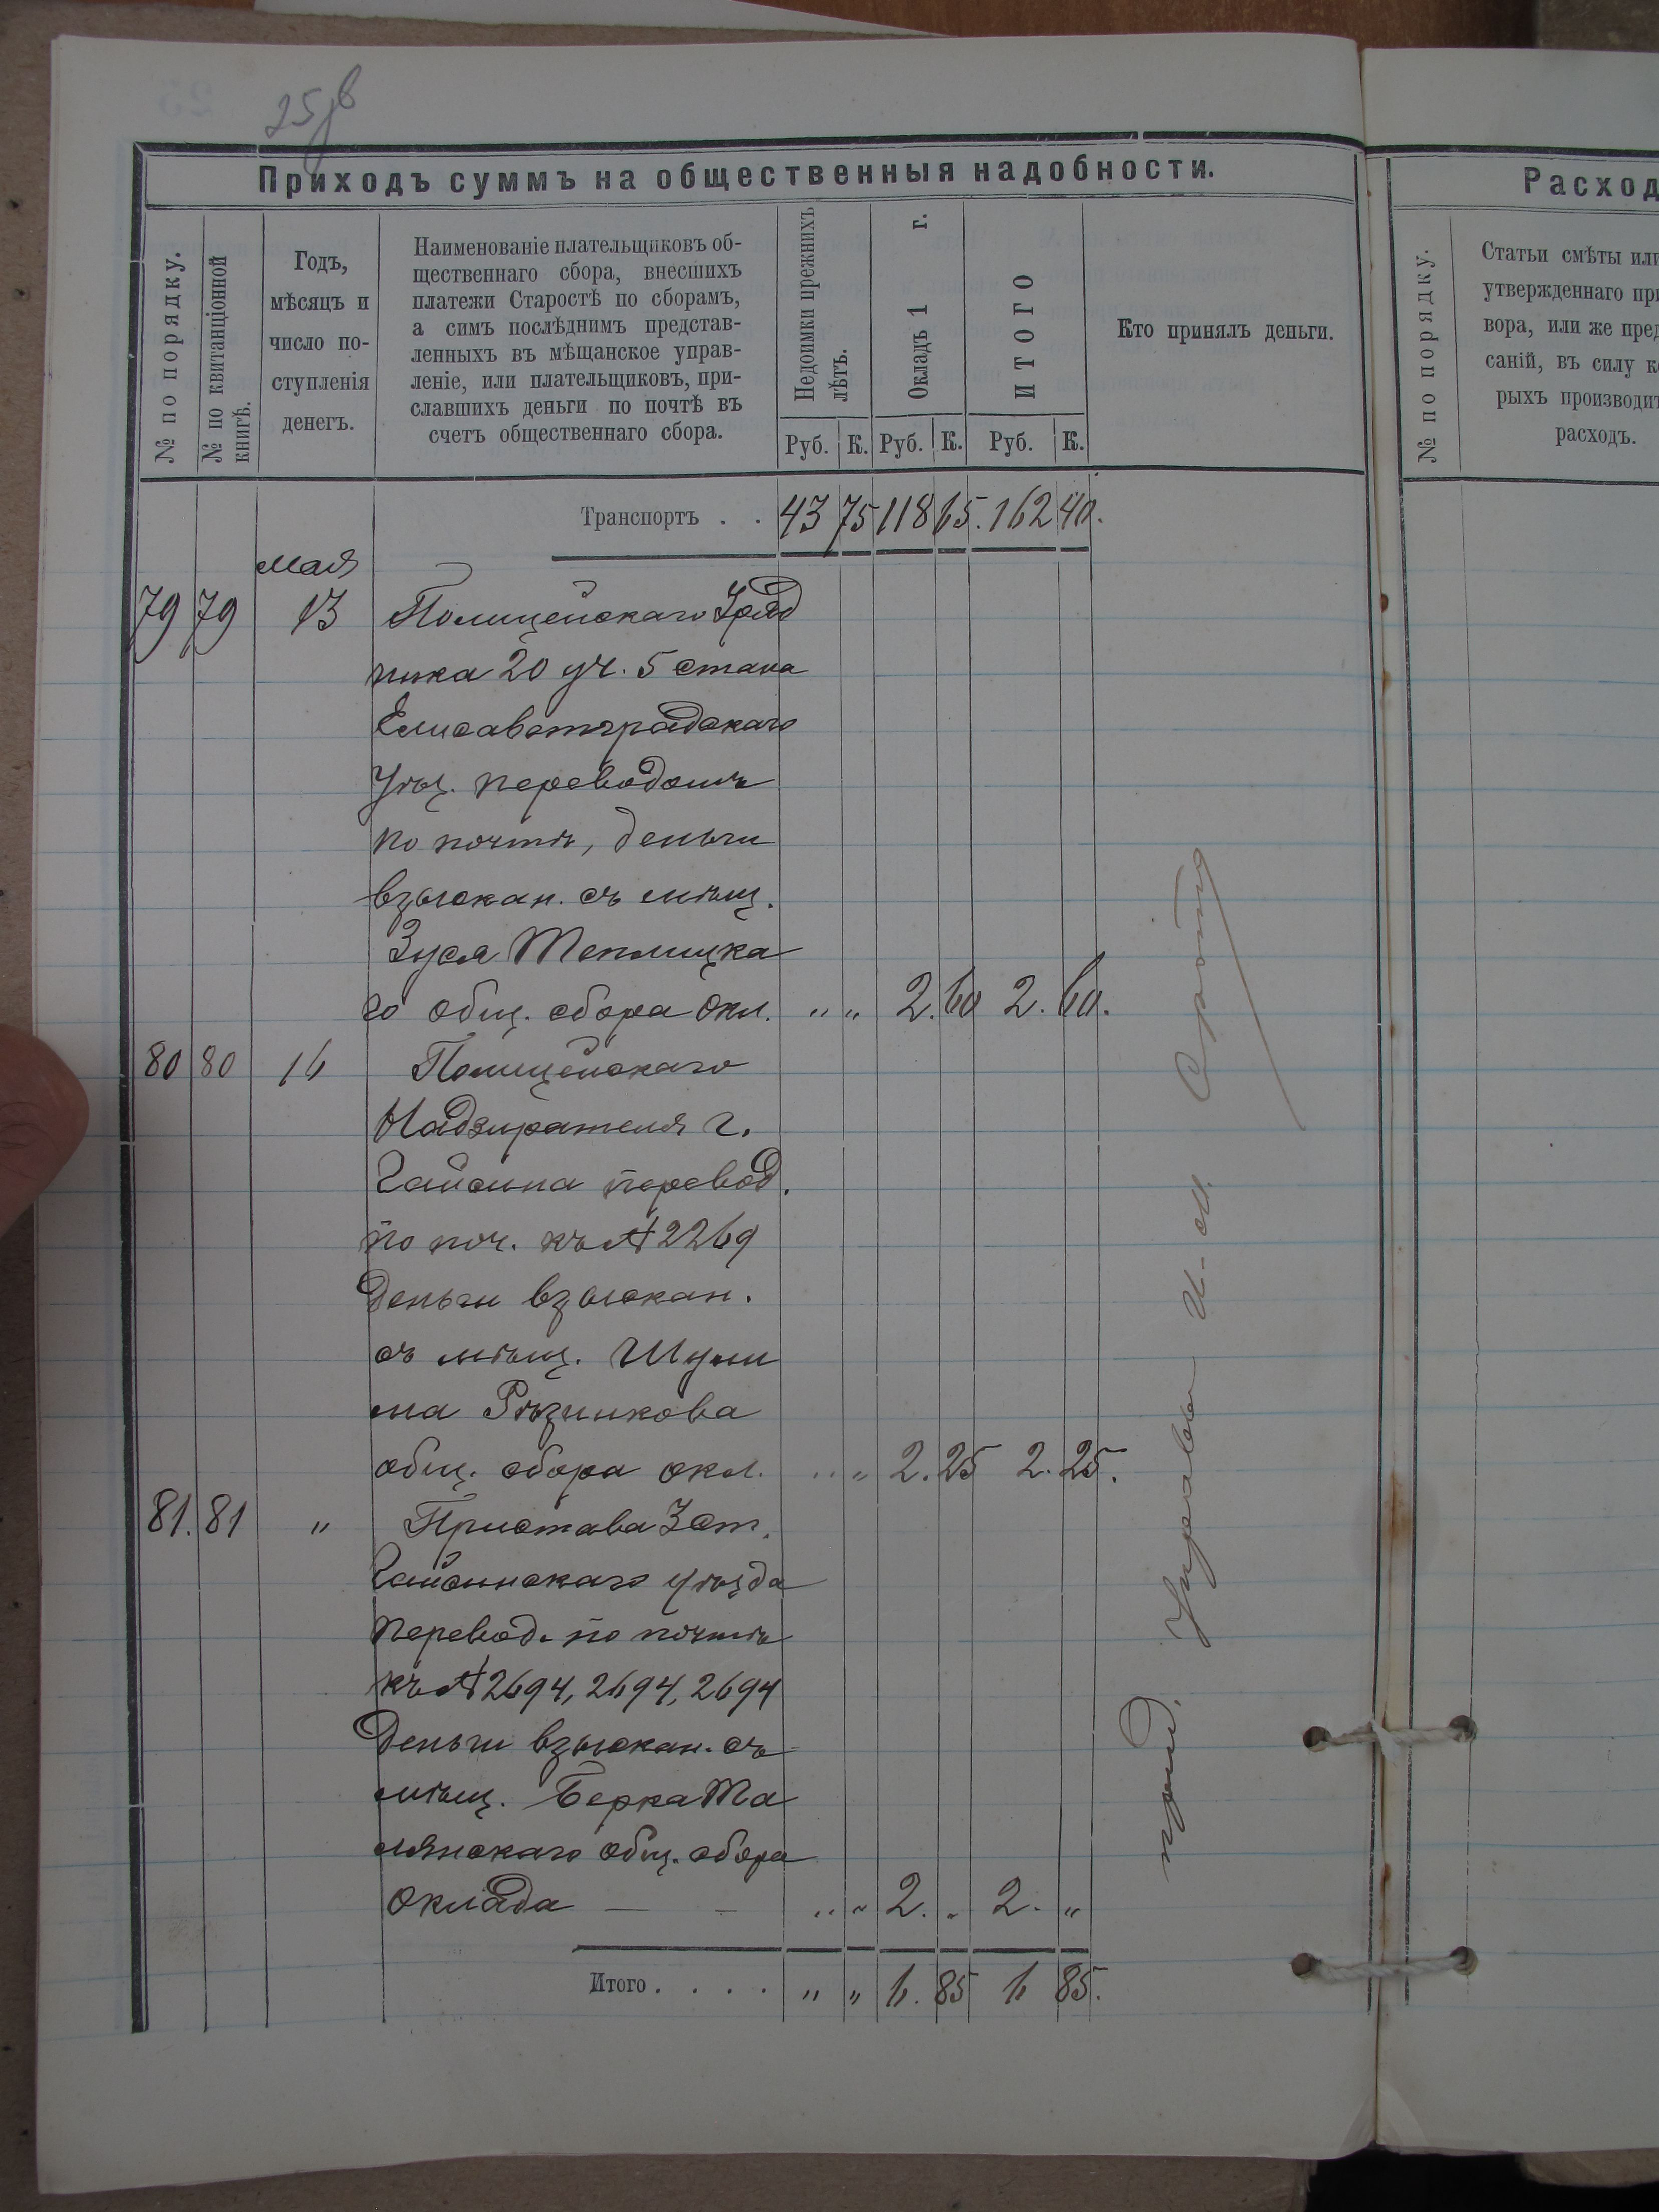 25 об
Приходъ суммъ на общественныя надобности.
№ по порядку.
№ по квитанціонной
книгѣ.
Годъ,
мѣсяцъ и
число по-
ступленія
денегъ.
Наименованіе плательщиковъ об-
щественнаго сбора, внесшихъ
платежи Старостѣ по сборамъ,
а симъ послѣднимъ представ-
ленныхъ въ мѣщанское управ-
леніе, или плательщиковъ, при-
славшихъ деньги по почтѣ въ
счетъ общественнаго сбора.
Недоимки прежнихъ
лѣтъ.
Окладъ 1 г.
ИТОГО
Руб. К. Руб. К. Руб. К.
Кто принялъ деньги.
Транспортъ . . 43 75 118 65. 162 40.
мая
79 79 13 Полицейскаго Уряд
ника 20 уч. 5 стана
Елисаветградскаго
Уѣз. переводомъ
по почтѣ, деньги
взыскан. съ мѣщ.
Зуся Теплицка
го общ. сбора окл. " " 2. 60 2. 60.
80 80 16 Полицейскаго
Надзирателя г.
Гайсина перевод.
по поч. къ № 2269
деньги взыскан.
съ мѣщ. Шули
ма Рѣзникова
общ. сбора окл. " " 2. 25 2. 25.
81. 81 " Пристава 3 ст.
Гайсинскаго уѣзда
перевод. по почтѣ
къ № 2694, 2694, 2694
деньги взыскан. съ
мѣщ. Берка Та
лянскаго общ. сбора
оклада — — " " 2. " 2. "
Итого . . . . " " 6. 85 6 85.
Управы
Расход
№ по порядку.
Статьи смѣты или
утвержденнаго при
вора, или же пред
саній, въ силу ко
рыхъ производит
расходъ.